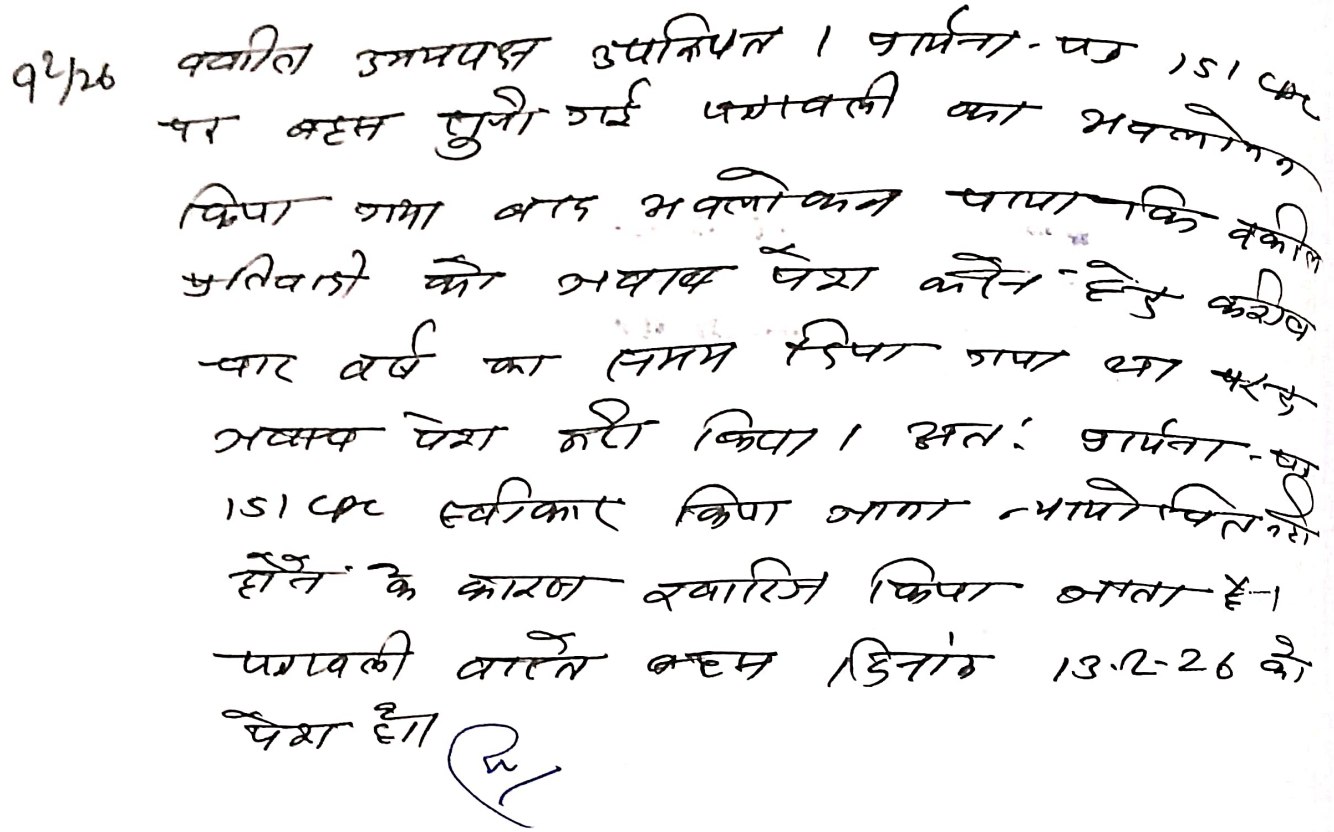 9/2/26 वकील उभयपक्ष उपस्थित । प्रार्थना-पत्र 151 CPC
पर बहस सुनी गई पत्रावली का अवलोकन
किया गया बाद अवलोकन पाया कि वकील
प्रतिवादी को जवाब पेश करने हेतु करीब
चार वर्ष का समय दिया गया था परन्तु
जवाब पेश नहीं किया । अतः प्रार्थना-पत्र
151 CPC स्वीकार किया जाना न्यायोचित नहीं
होने के कारण खारिज किया जाता है ।
पत्रावली वास्ते बहस दिनांक 13.2-26 को
पेश हो।